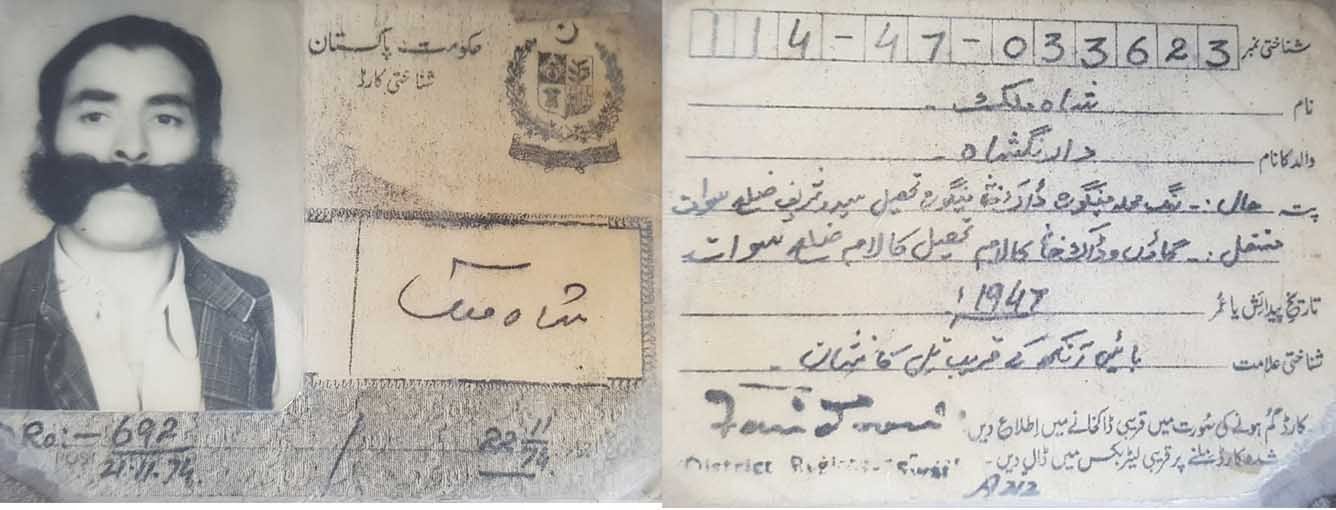 حکومت پاکستان
شناختی کارڈ
شاہ ملک
Ro:- 692
21.11.74
22 11/74
شناختی نمبر 114-47-033623
نام شاہ ملک
والد کا نام
پتہ حال:- محلہ مینگورہ ڈاکخانہ مینگورہ تحصیل سیدو شریف ضلع سوات
مستقل:- گاؤں و ڈاکخانہ کالام تحصیل کالام ضلع سوات
تاریخ پیدائش یا عمر 1947
شناختی علامت بائیں آنکھ کے قریب تل کا نشان
کارڈ گم ہونے کی صورت میں قریبی ڈاکخانے میں اطلاع دیں
شدہ کارڈ ملنے پر قریبی لیٹر بکس میں ڈال دیں۔
District
A 212